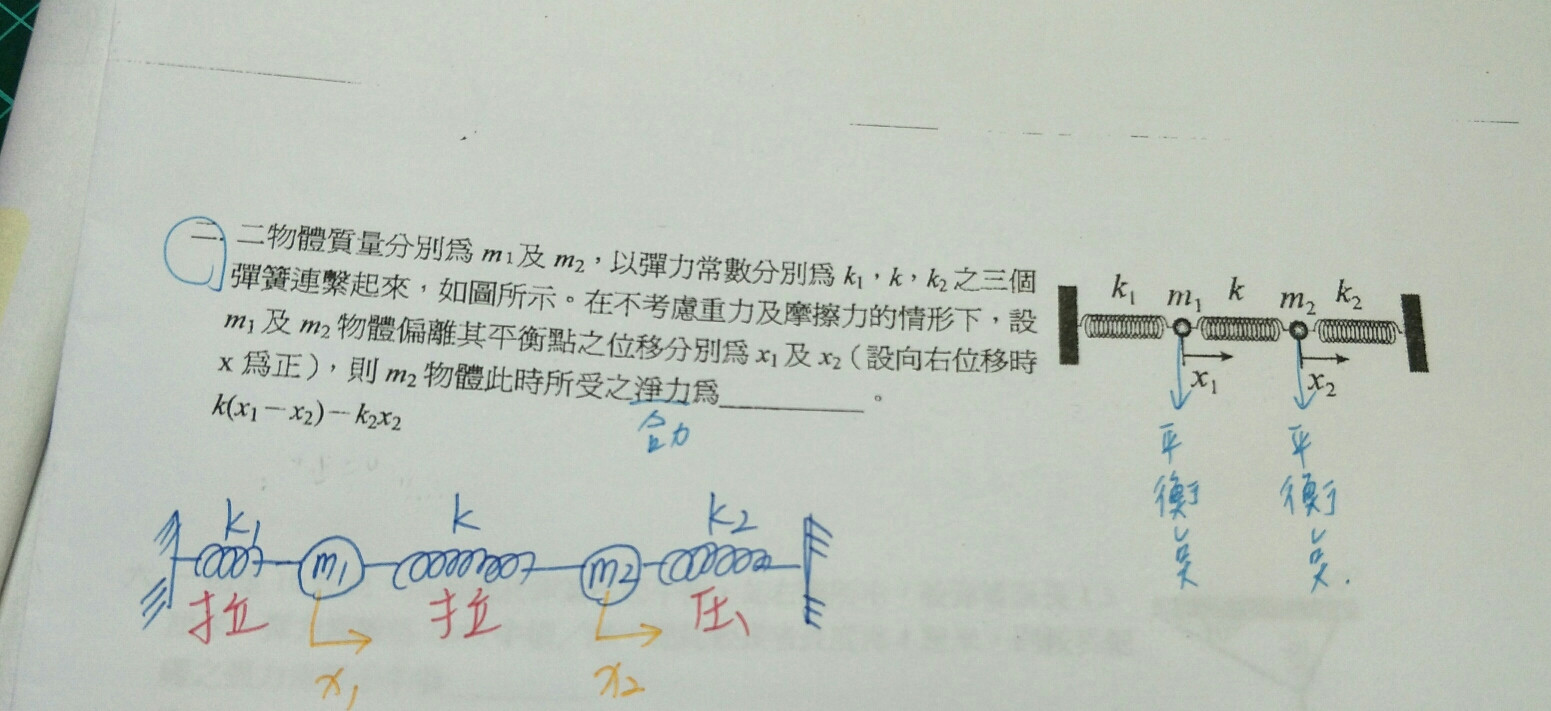 二. 二物體質量分別為 m₁及 m₂，以彈力常數分別為 k₁，k，k₂之三個
彈簧連繫起來，如圖所示。在不考慮重力及摩擦力的情形下，設
m₁及 m₂物體偏離其平衡點之位移分別為 x₁及 x₂（設向右位移時
x 為正），則 m₂物體此時所受之淨力為＿＿＿＿＿＿。
合力
k(x₁－x₂)－k₂x₂
k₁ m₁ k m₂ k₂
x₁ x₂
平衡點 平衡點.
k₁ k k₂
m₁ m₂
拉 拉 压
x₁ x₂